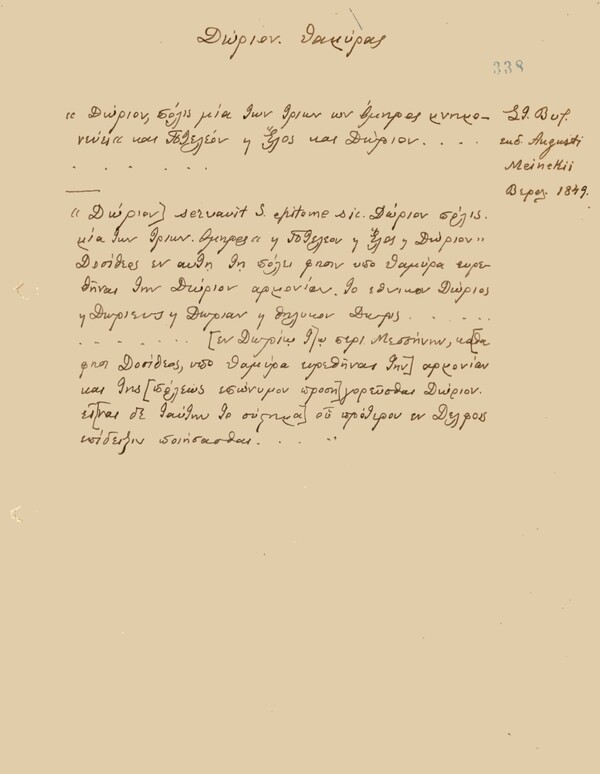 Δώριον. Θαμύρας
338
« Δώριον, πόλις μία των τριων ων Όμηρος μνημο-
νεύει« και Πτελεόν η Έλος και Δώριον. . . .
. . . . . .
Στ. Βυζ.
εκδ. Augusti
Meinekii
Βερολ. 1849.
« Δώριον] servavit S. epitome sic. Δώριον πόλις.
μία των τριων. Όμηρος« η Πτελεον η Έλος η Δώριον»
Δοσίθεος εν αυτη τη πόλει φησιν υπο Θαμύρα ευρε-
θήναι την Δώριον αρμονίαν. το εθνικον Δώριος
η Δωριευς η Δωριαν η θηλυκον Δωρις. . . . . .
. . . . . . [εν Δωρίω τ]ω περι Μεσσήνην, κα[θα
φησι Δοσίθεος, υπο Θαμύρα ευρεθήναι την] αρμονίαν
και της [πόλεως επώνυμον προση]γορεύσθαι Δώριον.
εί[ναι δε ταύτην το σύστημα] οὗ πρότερον εν Δελφοις
επίδειξιν ποιήσασθαι. . . . »